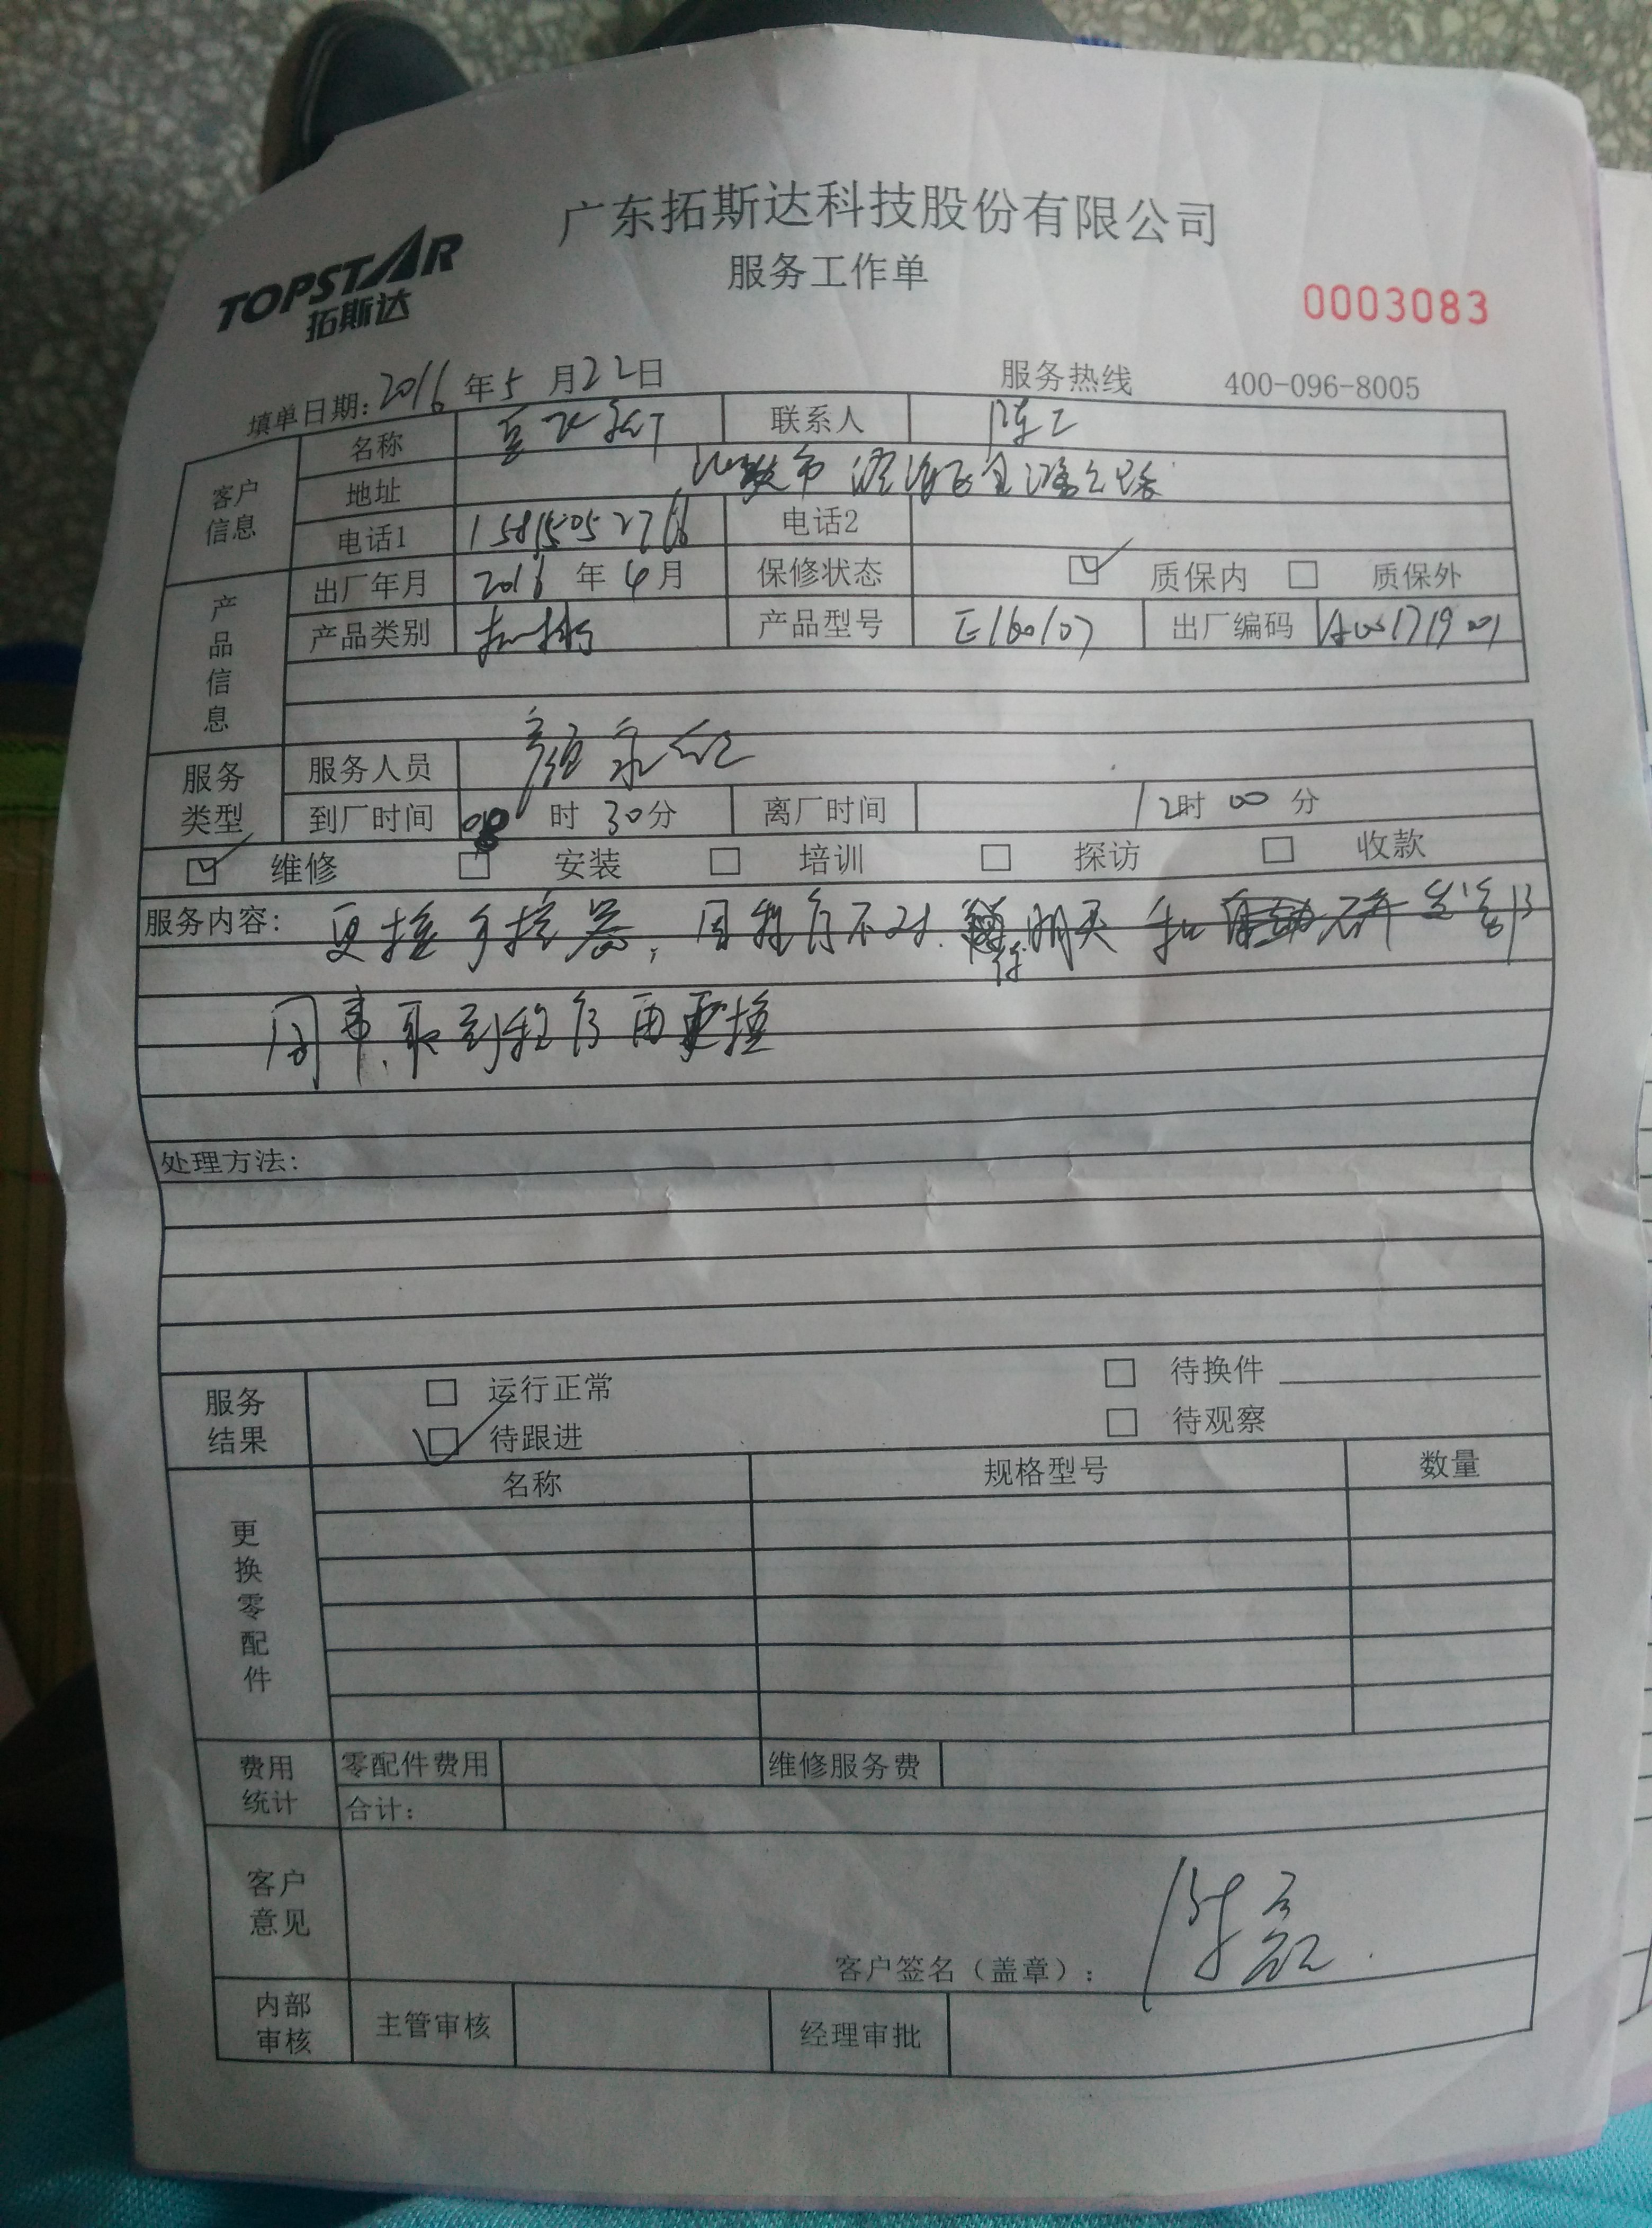 广东拓斯达科技股份有限公司
TOPSTAR
拓斯达
服务工作单
0003083
填单日期: 2016 年 5 月 22 日 服务热线 400-096-8005
客户信息 名称 联系人 陈工
地址
电话1 电话2
产品信息 出厂年月 2016 年 4 月 保修状态 质保内 质保外
产品类别 机械手 产品型号 出厂编码
服务类型 服务人员 颜
到厂时间 08 时 30 分 离厂时间 12 时 00 分
维修 安装 培训 探访 收款
服务内容: 更换手控器, 因程序不对. 待明天和 研发部
同事取到程序再更换
处理方法:
服务结果 运行正常 待换件
待跟进 待观察
更换零配件 名称 规格型号 数量
费用统计 零配件费用 维修服务费
合计:
客户意见
客户签名(盖章): 陈
内部审核 主管审核 经理审批